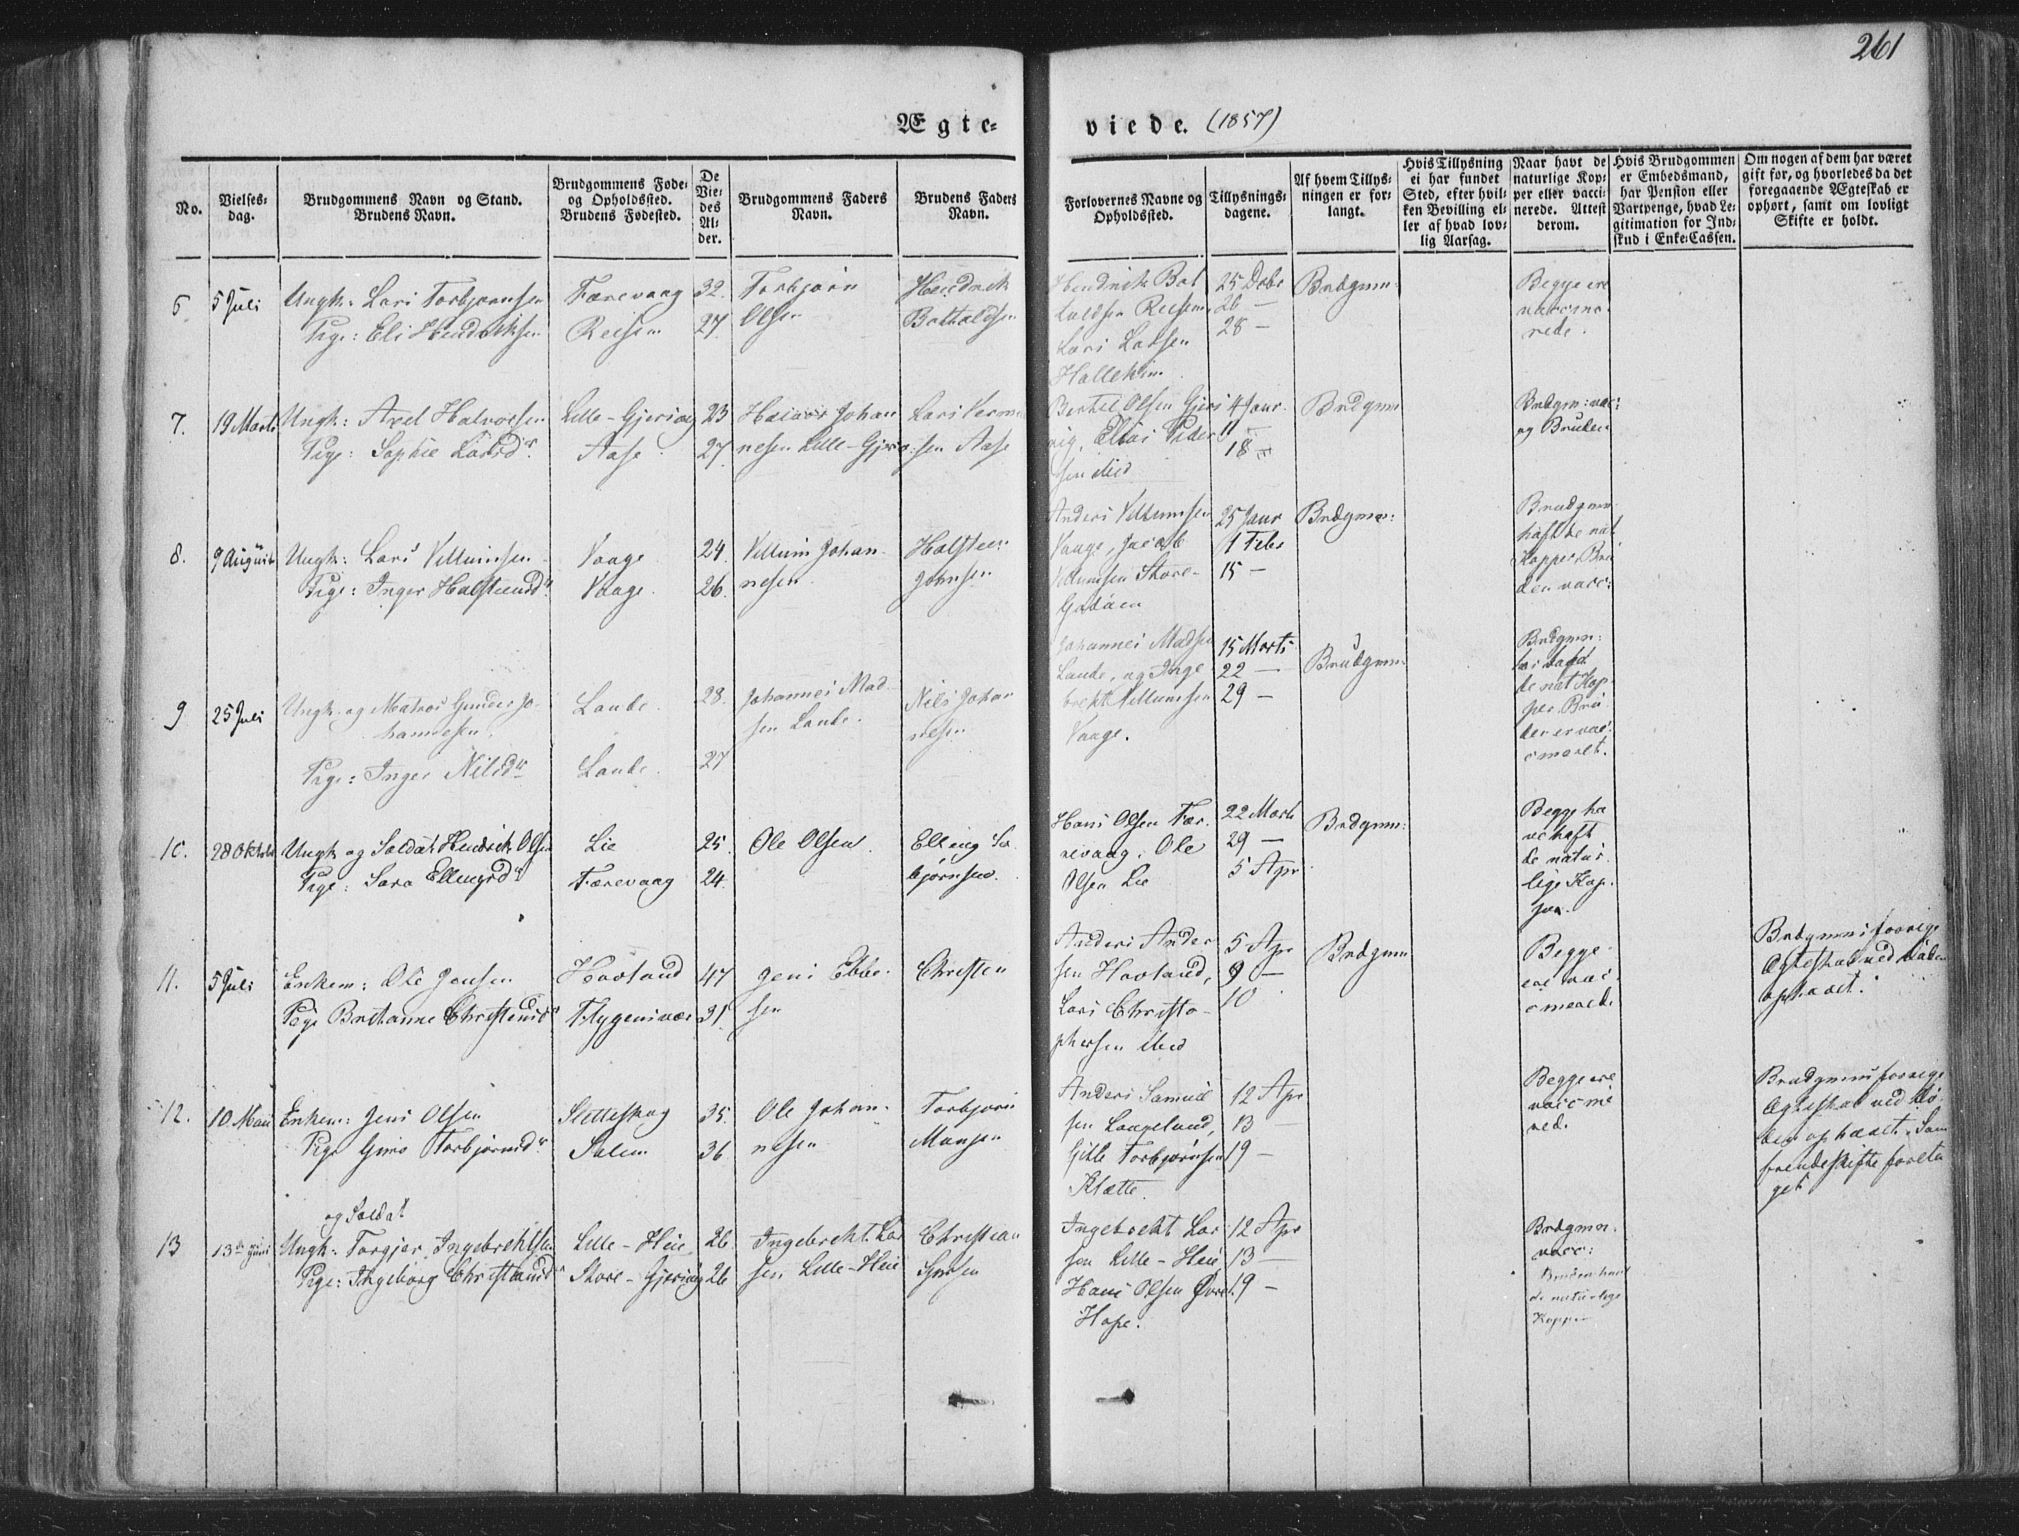 261
Ægte-
viede. (1857)
No.
Vielses-
dag.
Brudgommens Navn og Stand.
Brudens Navn.
Brudgommens Føde-
og Opholdssted.
Brudens Fødested.
De
Vie-
des
Al-
der.
Brudgommens Faders
Navn.
Brudens Faders
Navn.
Forlovernes Navne og
Opholdssted.
Tillysnings-
dagene.
Af hvem Tillys-
ningen er for-
langt.
Hvis Tillysning
ei har fundet
Sted, efter hvil-
ken Bevilling el-
ler af hvad lov-
lig Aarsag.
Naar havt de
naturlige Kop-
per eller vacci-
nerede. Attest
derom.
Hvis Brudgommen
er Embedsmand,
har Pension eller
Vartpenge, hvad Le-
gitimation for Ind-
skud i Enke-Cassen.
Om nogen af dem har været
gift før, og hvorledes da det
foregaaende Ægteskab er
ophørt, samt om lovligt
Skifte er holdt.
6
5 Juli
Ungk: Lars Torbjørnsen
Pige: Eli
Færevaag
32.
27.
Torbjørn
Olsen
Hendrik
Botholdsen
Hendrik Bot
Lars Larsen
25 Debr
26 —
28 —
Brdgmn:
Begge ere
vaccine-
rede.
7.
19 Marts
Ungk: Axel Halvorsen
Pige: Sophie Larsdr.
Lille-Gjervig
Aase
23
27.
Halvor Johan
nesen Lille-Gjervig
Lars
sen Aase
Bertel Olsen Gjer
vig, Elias Peder
sen ibid
4 Janr.
11 —
18 —
Brdgmn
Brdgm: vac:
og Bruden
8.
9 August
Ungk: Lars Villumsen
Pige: Inger Halsteensdr
Vaage
Vaage.
24
26.
Villum Johan-
nesen
Halsteen
Johnsen
Anders Villumsen
Vaage, Jacob
Villumsen Store-
25 Janr
1 Febr
15 —
Brdgmn:
Brudgmn
haft de nat
Kopper, Bru
den vacc:
9
25 Juli
Ungk. og Matros Gunder Jo-
hannesen.
Pige: Inger Nilsdr
Lande.
Lande.
28.
27
Johannes Mad-
sen Lande.
Nils Johan
nesen
Johannes Madsen
Lande, og Inge
brekt Villumsen
Vaage.
15 Marts
22 —
29 —
Brudgmn
Brdgmn:
de nat Kop-
per. Bru
den er vac-
cineret.
10.
28 Oktobr
Ungk og Soldat Hendrik Olsen
Pige: Sara Ellingsdr
Lie
Færevaag
25.
24.
Ole Olsen.
Elling To
bjørnsen.
Hans Olsen Fær-
revaag. Ole
Olsen Lie
22 Marts
29 —
5 Apr
Brdgmn:
Begge ha
ve haft
de natur
lige Kop-
per.
11.
5 Juli
Enkem: Ole Jensen
Pige Bertanne Christensdr
Havland
Flygensvær
47
31.
Jens Ebbe-
sen
Christen
Anders Ander
sen Havland,
Lars Christo-
phersen ibid
5 Apr
9 —
10
Brdgmn
Begge
ere vac
cinerede
Brdgmns forrige
Ægteskab ved Døden
ophævet.
12.
10 Mai
Enkem: Jens Olsen
Pige Torbjørnsdr
Sletteskog
35.
36
Ole Johan-
nesen
Torbjørn
Monsen
Anders Samuel
sen Langeland,
Torbjørnsen
Klætte.
12 Apr
13 —
19 —
Begge ere
vaccine
red.
Brudgmns forrige
Ægteskab ved Dø-
den ophævet. Sam
frendeskifte foreta
get
13
13de Juni
og Soldat
Ungk: Torgjer Ingebrektsen
Pige: Ingeborg Christiansdr
Lille-Heie
Store-Gjervig
26
26
Ingebrekt Lar
sen Lille-Heie
Christian
Ingebrekt Lar
sen Lille-Heie
Hans Olsen Øvre
Hope.
12 Apr
13 —
19 —
Brdgmn.
vacc:
Bruden havt
de naturlige
Kopper